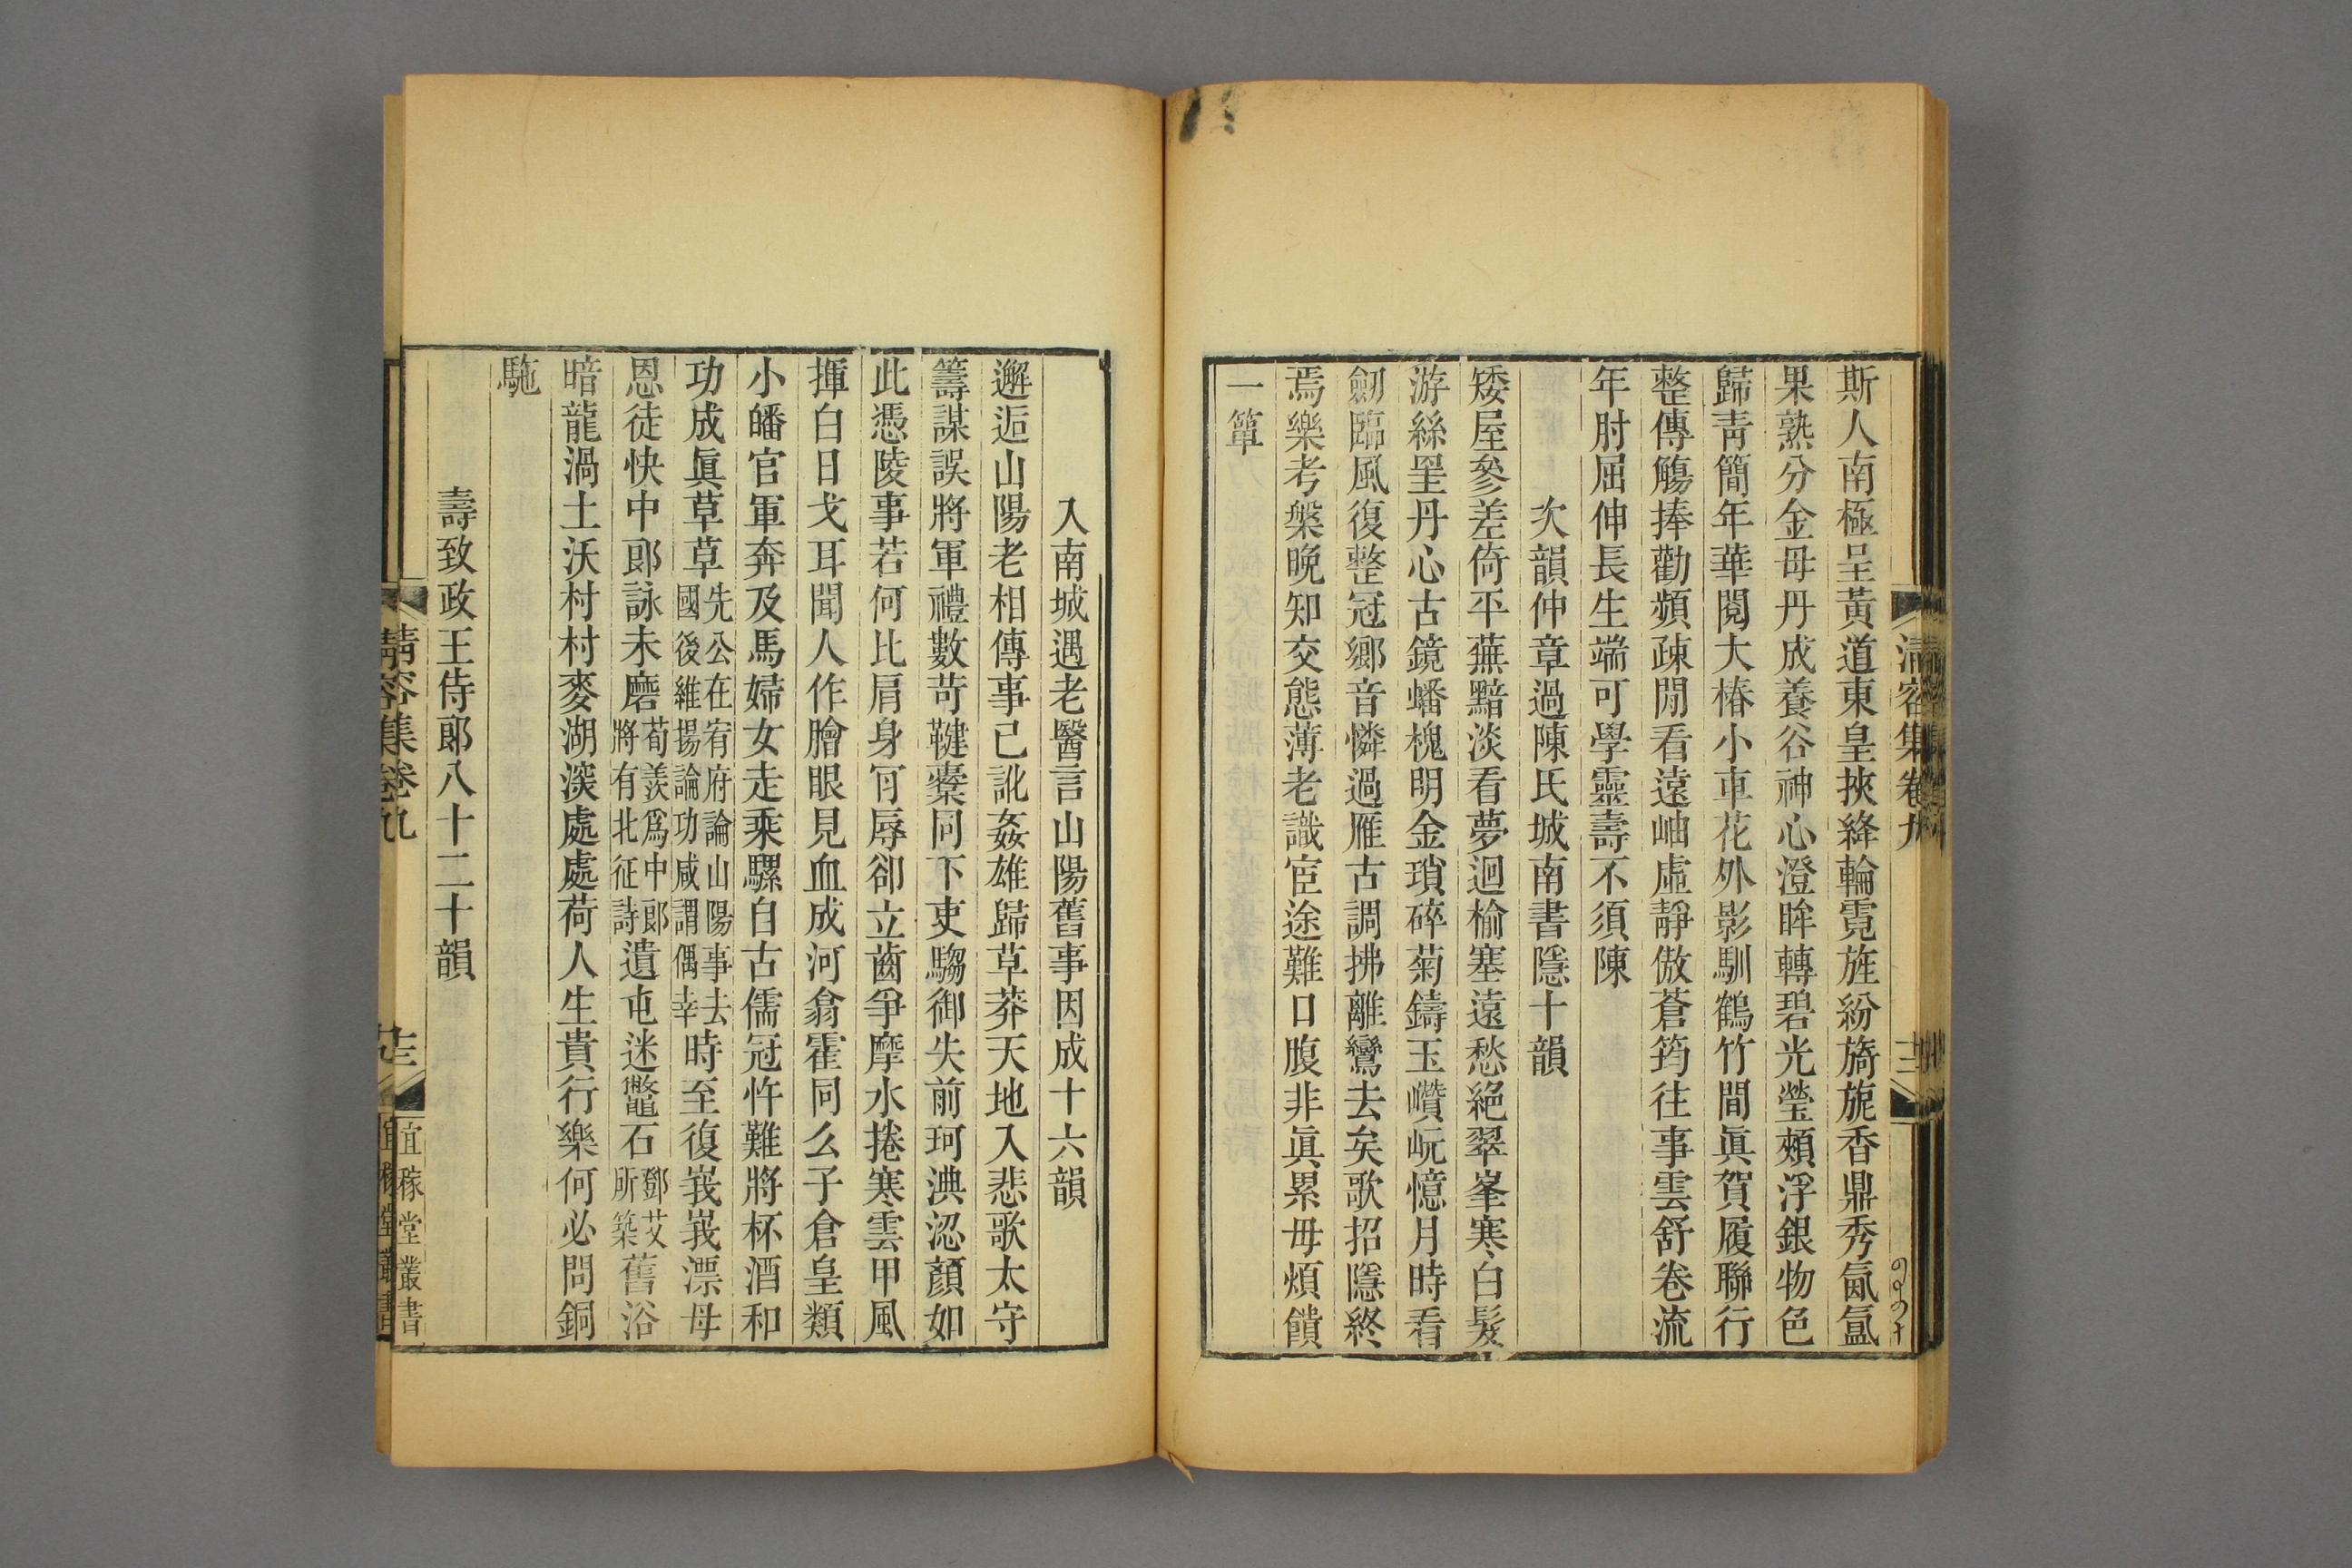 斯人南極呈黃道東皇挾絳輪霓旌紛旖旎香鼎秀氤氳
果熟分金母丹成養谷神心澄眸轉碧光瑩頰浮銀物色
歸靑簡年華閱大椿小車花外影馴鶴竹間眞賀履聯行
整傳觴捧勸頻疎閒看遠岫虛靜傲蒼筠往事雲舒卷流
年肘屈伸長生端可學靈壽不須陳
次韻仲章過陳氏城南書隱十韻
矮屋參差倚平蕪黯淡看夢迴榆塞遠愁絕翠峯寒白髮
游絲罣丹心古鏡蟠槐明金瑣碎菊鑄玉巑岏憶月時看
劒臨風復整冠鄉音憐過雁古調拂離鸞去矣歌招隱終
焉樂考槃晚知交態薄老識宦途難口腹非眞累毋煩饋
一簞
清容集卷九
入南城遇老醫言山陽舊事因成十六韻
邂逅山陽老相傳事已訛姦雄歸草莽天地入悲歌太守
籌謀誤將軍禮數苛鞬櫜同下吏騶御失前珂淟涊顏如
此憑陵事若何比肩身冐辱卻立齒爭摩水捲寒雲甲風
揮白日戈耳聞人作膾眼見血成河翁霍同么子倉皇類
小皤官軍奔及馬婦女走乘騾自古儒冠忤難將杯酒和
功成眞草草先公在宥府論山陽事去國後維揚論功咸謂偶幸時至復峩峩漂母
恩徒快中郞詠未磨荀羨爲中郞將有北征詩遺屯迷鼈石鄧艾所築舊浴
暗龍渦土沃村村麥湖深處處荷人生貴行樂何必問銅
駞
壽致政王侍郞八十二十韻
淸容集卷九
宜稼堂叢書